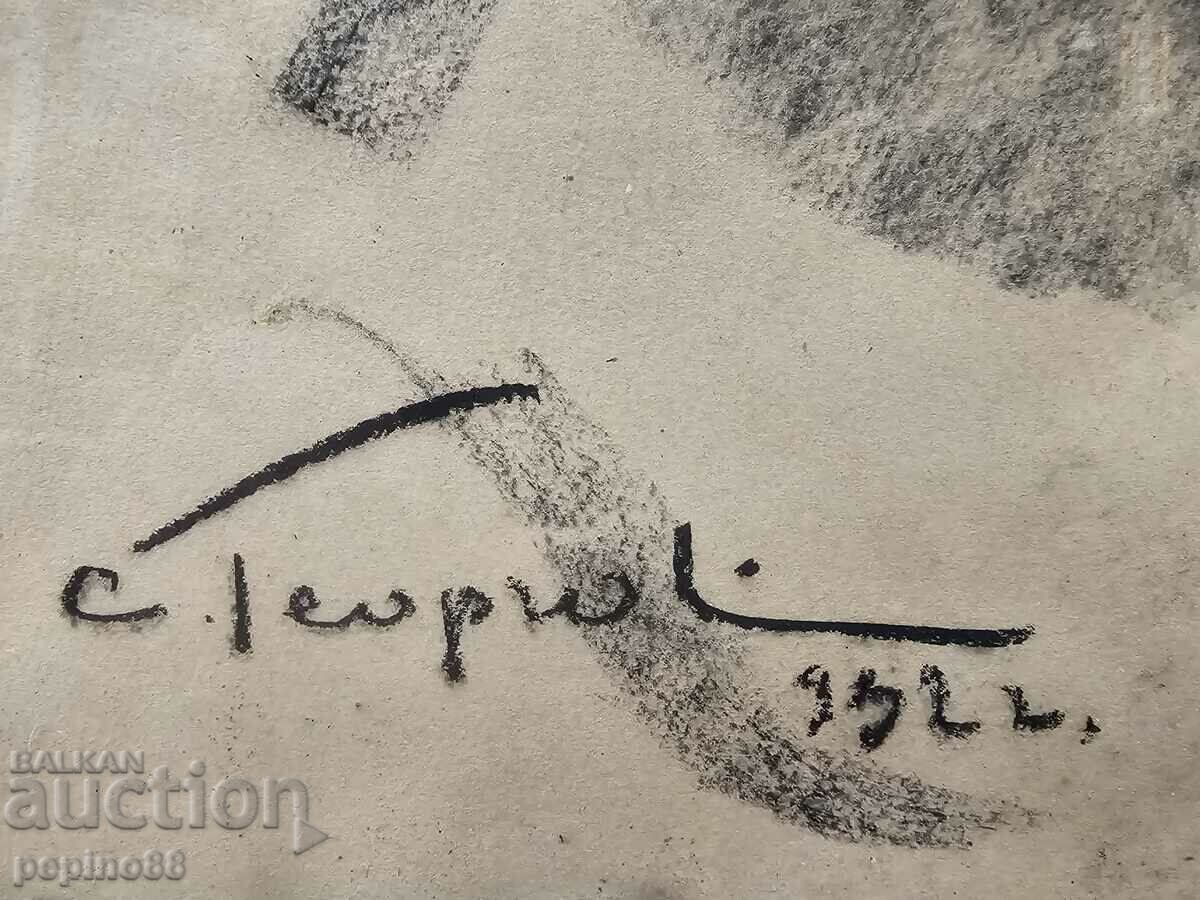 С. Георгиев
952 г.
BALKAN
auction
pepino88